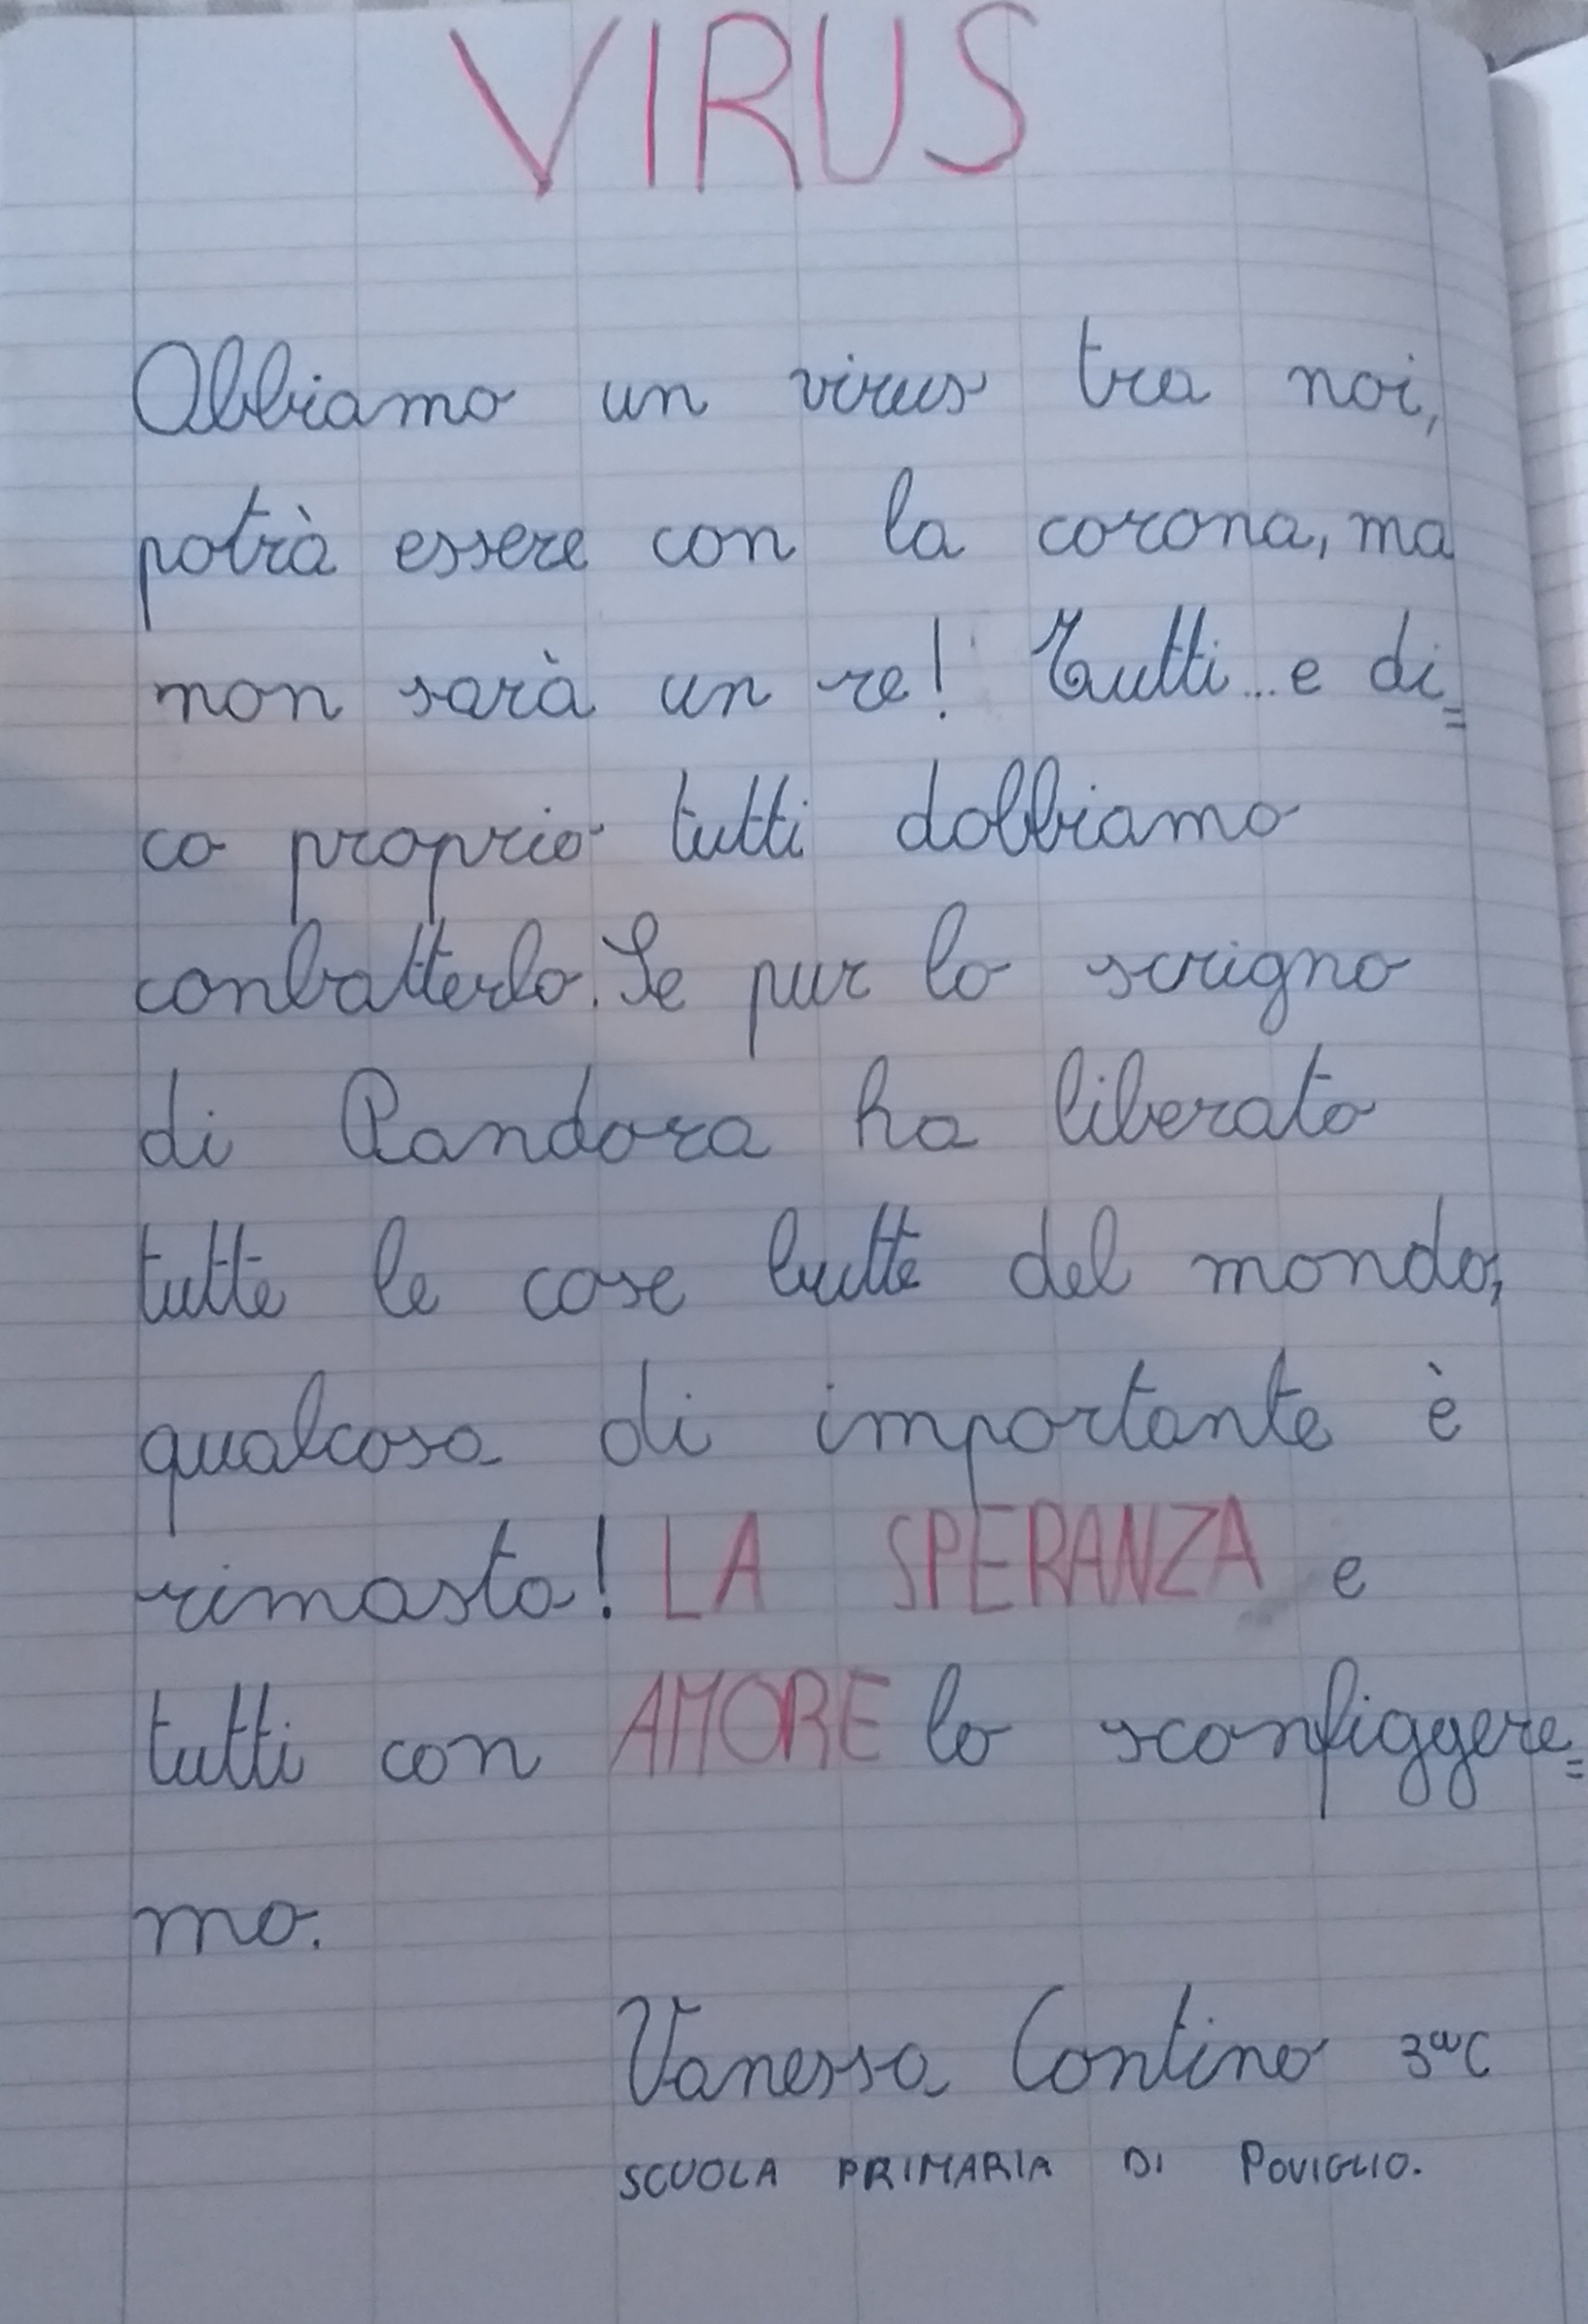 VIRUS
Abbiamo un virus tra noi,
potrà essere con la corona, ma
non sarà un re! Tutti... e di=
co proprio tutti dobbiamo
conbatterlo. Se pur lo scrigno
di Pandora ha liberato
tutte le cose butte del mondo,
qualcosa di importante è
rimasta! LA SPERANZA e
tutti con AMORE lo sconfiggere=
mo.
Vanessa Contino 3ªC
SCUOLA PRIMARIA DI POVIGLIO.